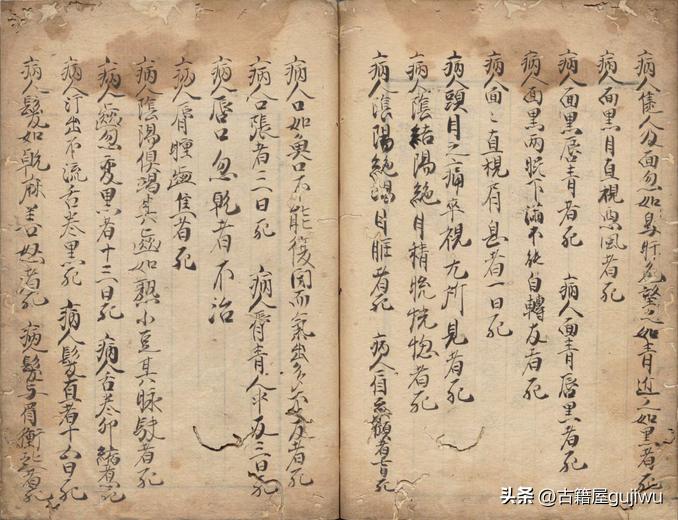 病人人及面忽如馬肝色望之如青近之如黑者死
病人面黑目直視惡風者死
病人面黑唇青者死 病人面青唇黑者死
病人面黑兩脇下滿不能自轉反者死
病人面直視肩息者一日死
病頭目久痛卒視无所見者死
病人陰結陽絕目精脫恍惚者死
病人陰陽絕竭目眶者死 病人眉系傾者七日死
病人口如魚口不能復閉而氣出多不反者死
病人口張者三日死 病人唇青人中反三日死
病人唇口忽乾者不治
病人唇腫齒焦者死
病人陰陽俱竭其齒如熟小豆其脉駃者死
病人齒忽變黑者十三日死 病人舌卷卵縮者死
病人汗出不流舌卷黑死 病人髮直者十五日死
病人髮如乾麻善怒者死 病人髮与眉衝起者死
头条 @古籍屋gujiwu